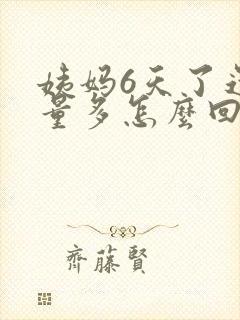 姨妈6天了还
量多怎麼回
齊藤賢